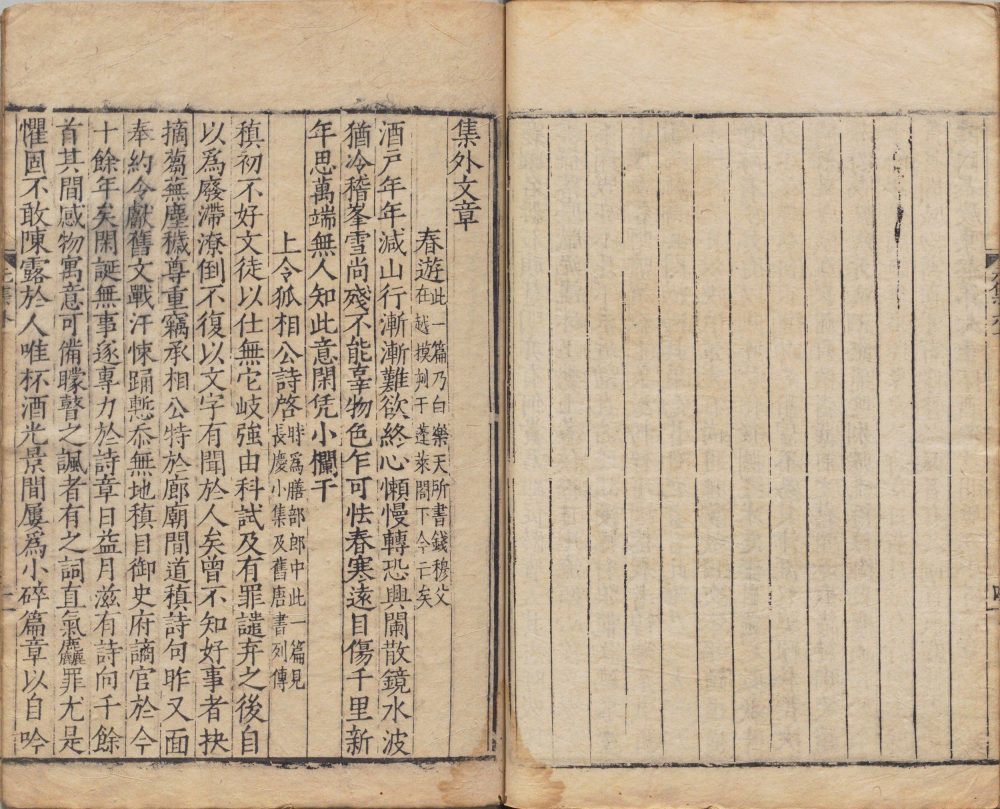 集外文章
春遊此一篇乃白樂天所書錢穆父
在越摸刋于蓬萊閣下今亡矣
酒戶年年減山行漸漸難欲終心懶慢轉恐興闌散鏡水波
猶冷稽峯雪尚殘不能辜物色乍可怯春寒遠目傷千里新
年思萬端無人知此意閑凭小欄干
上令狐相公詩啓時爲膳部郎中此一篇見
長慶小集及舊唐書列傳
稹初不好文徒以仕無它岐強由科試及有罪譴弃之後自
以爲廢滯潦倒不復以文字有聞於人矣曾不知好事者抉
摘蒭蕪塵穢尊重竊承相公特於廊廟間道稹詩句昨又面
奉約令獻舊文戰汗悚踊慙忝無地稹目御史府謫官於今
十餘年矣閑誕無事遂專力於詩章日益月滋有詩向千餘
首其間感物寓意可備矇瞽之諷者有之詞直氣麤罪尤是
懼固不敢陳露於人唯杯酒光景間屢爲小碎篇章以自吟